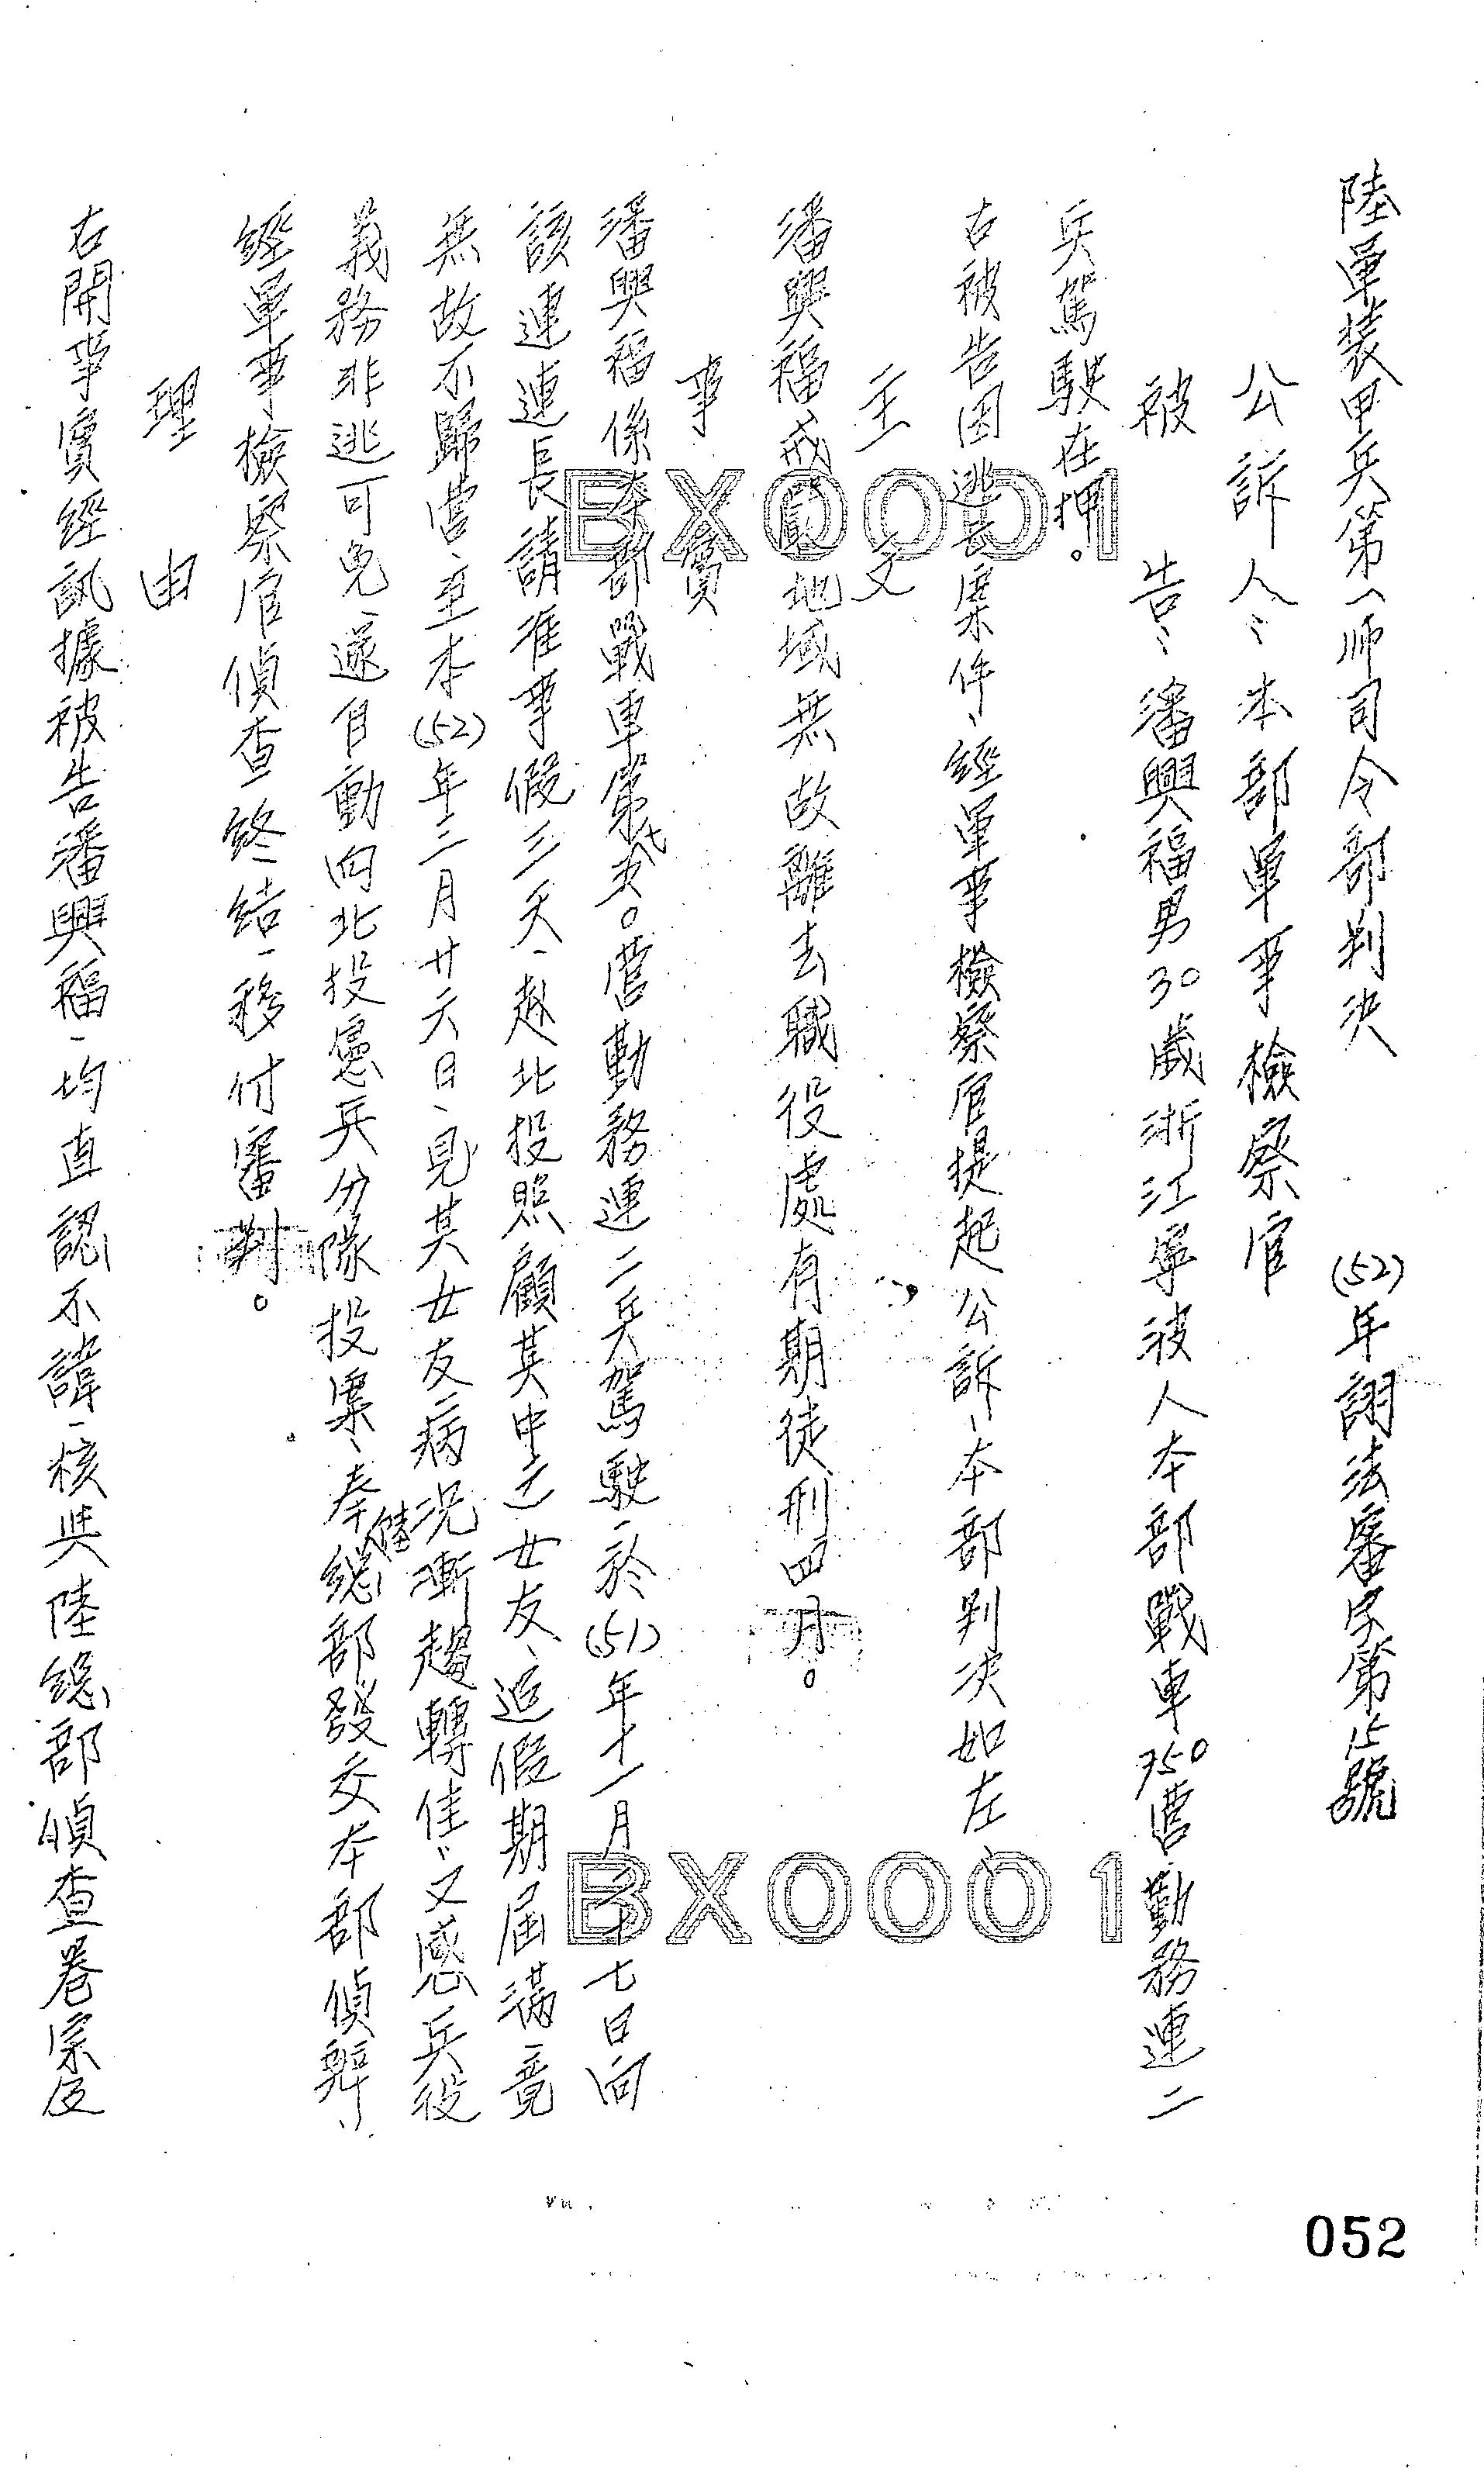 陸軍装甲兵第一師司令部判決　(52)年詡法審字第15號
公訴人、本部軍事檢察官
被告、潘興福男30歲浙江寧波人本部戰車750營勤務連二
兵駕駛在押。
右被告因逃亡案件、經軍事檢察官提起公訴、本部判決如左、
主文
潘興福戒嚴地域無故離去職役處有期徒刑四月。
事實
潘興福係本部戰車第七五〇營勤務連二兵駕駛、於(51)年十一月二十七日向
該連連長請准事假三天、赴北投照顧其申之女友、迨假期届滿、竟
無故不歸營、至本(52)年二月廿六日、見其女友病況漸趨轉佳、又感兵役
義務非逃可免、遂自動向北投憲兵分隊投案、奉陸總部發交本部偵辦、
經軍事檢察官偵查終結、移付審判。
理由
右開事實經訊據被告潘興福、均直認不諱、核與陸總部偵查卷宗及
BX0001
BX0001
052